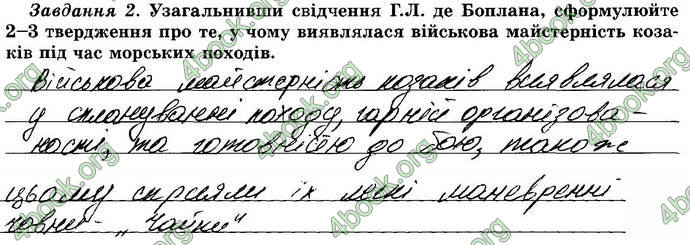 Завдання 2. Узагальнивши свідчення Г.Л. де Боплана, сформулюйте
2–3 твердження про те, у чому виявлялася військова майстерність коза-
ків під час морських походів.
Військова майстерність козаків виявлялася
у сплануванні походу, гарній організова-
ності, та готовністю до бою, також
цьому сприяли їх легкі маневренні
човни - „Чайки"
4book.org